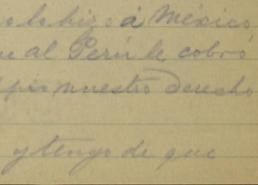 lo hizo á México
al Perú le cobró
nuestro derecho
y tengo de que